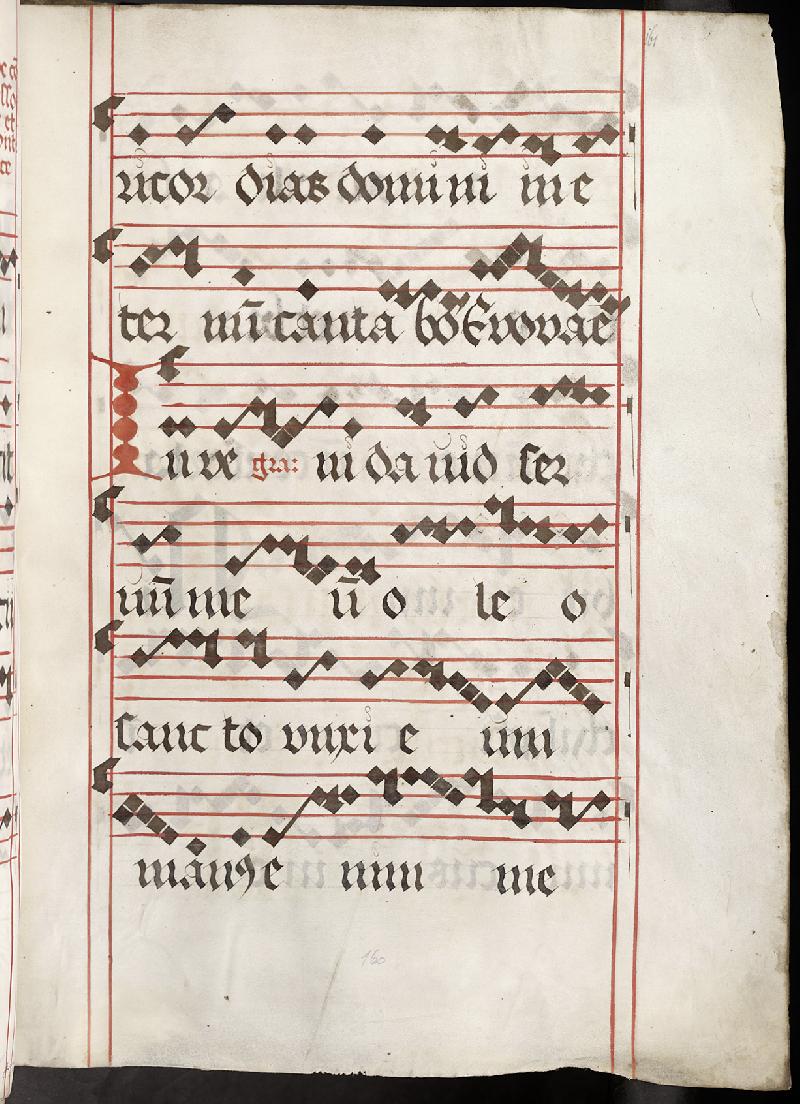 161
ricor dias domini in e
ter nū canta bo Evovae
Inve gra: ni da uid ser
uū me ū o le o
sanc to unxi e um
man9 e nim me
160